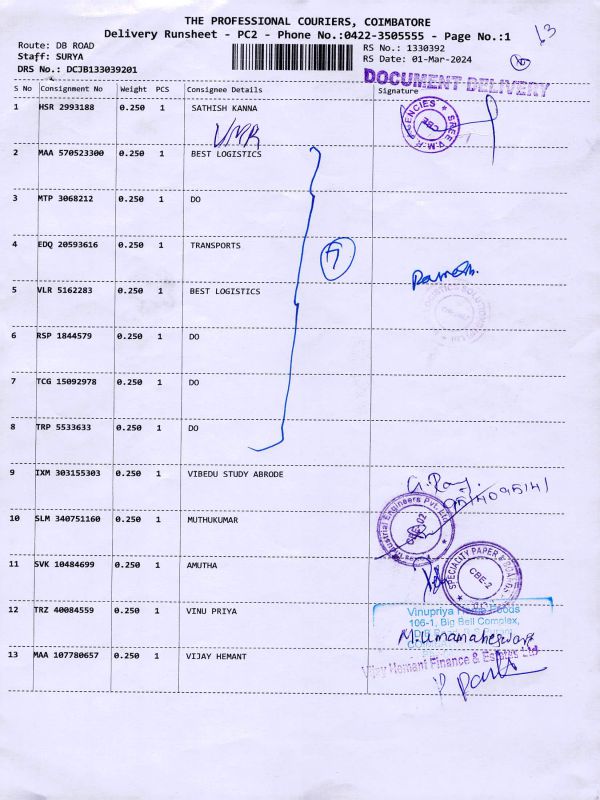 THE PROFESSIONAL COURIERS, COIMBATORE
Delivery Runsheet - PC2 - Phone No.:0422-3505555 - Page No.:1
13
Route: DB ROAD
Staff: SURYA
DRS No.: DCJB133039201
RS No.: 1330392
RS Date: 01-Mar-2024
DOCUMENT DELIVERY
S No Consignment No Weight PCS Consignee Details Signature
1 HSR 2993188 0.250 1 SATHISH KANNA
VMR
SREE V.M.R AGENCIES
CBE
2 MAA 570523300 0.250 1 BEST LOGISTICS
3 MTP 3068212 0.250 1 DO
4 EDQ 20593616 0.250 1 TRANSPORTS
7
Ramesh.
5 VLR 5162283 0.250 1 BEST LOGISTICS
6 RSP 1844579 0.250 1 DO
7 TCG 15092978 0.250 1 DO
8 TRP 5533633 0.250 1 DO
9 IXM 303155303 0.250 1 VIBEDU STUDY ABRODE
10 SLM 340751160 0.250 1 MUTHUKUMAR
Industrial Engineers Pvt. Ltd
11 SVK 10484699 0.250 1 AMUTHA
SPECIALITY PAPER & BOARD
CBE-2
12 TRZ 40084559 0.250 1 VINU PRIYA
Vinupriya Foods
106-1, Big Bell Complex,
M.Umamaheswari
13 MAA 107780657 0.250 1 VIJAY HEMANT
Vijay Hemant Finance & Estates Ltd